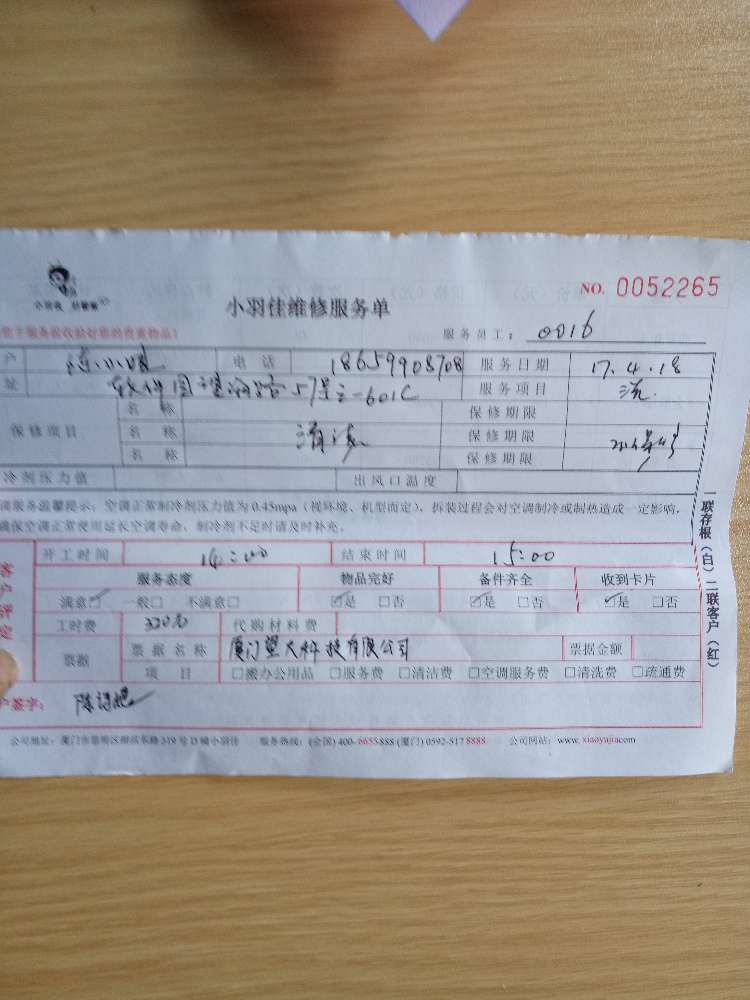 小羽佳 好管家
NO. 0052265
小羽佳维修服务单
服务员工: 0016
户 电话 18659908708 服务日期 17.4.18
址 软件园望海路57号之一601C 服务项目
名称 保修期限
保修项目 名称 保修期限
名称 保修期限
冷剂压力值 出风口温度
调服务温馨提示: 空调正常制冷剂压力值为0.45mpa (视环境、机型而定), 拆装过程会对空调制冷或制热造成一定影响,
确保空调正常使用延长空调寿命, 制冷剂不足时请及时补充。
开工时间 14:00 结束时间 15:00
客户评定
服务态度 物品完好 备件齐全 收到卡片
满意☑ 一般□ 不满意□ ☑是 □否 ☑是 □否 ☑是 □否
工时费 320元 代购材料费
票据 票据名称 厦门望天科技有限公司 票据金额
项目 □搬办公用品 □服务费 □清洁费 □空调服务费 □清洗费 □疏通费
户签字:
一联存根(白) 二联客户(红)
公司地址: 厦门市思明区湖滨东路319号D幢小羽佳 服务热线: (全国) 400-6655888 (厦门) 0592-5178888 公司网站: www.xiaoyujia.com